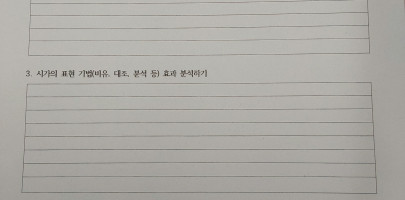 3. 시가의 표현 기법(비유, 대조, 분석 등) 효과 분석하기